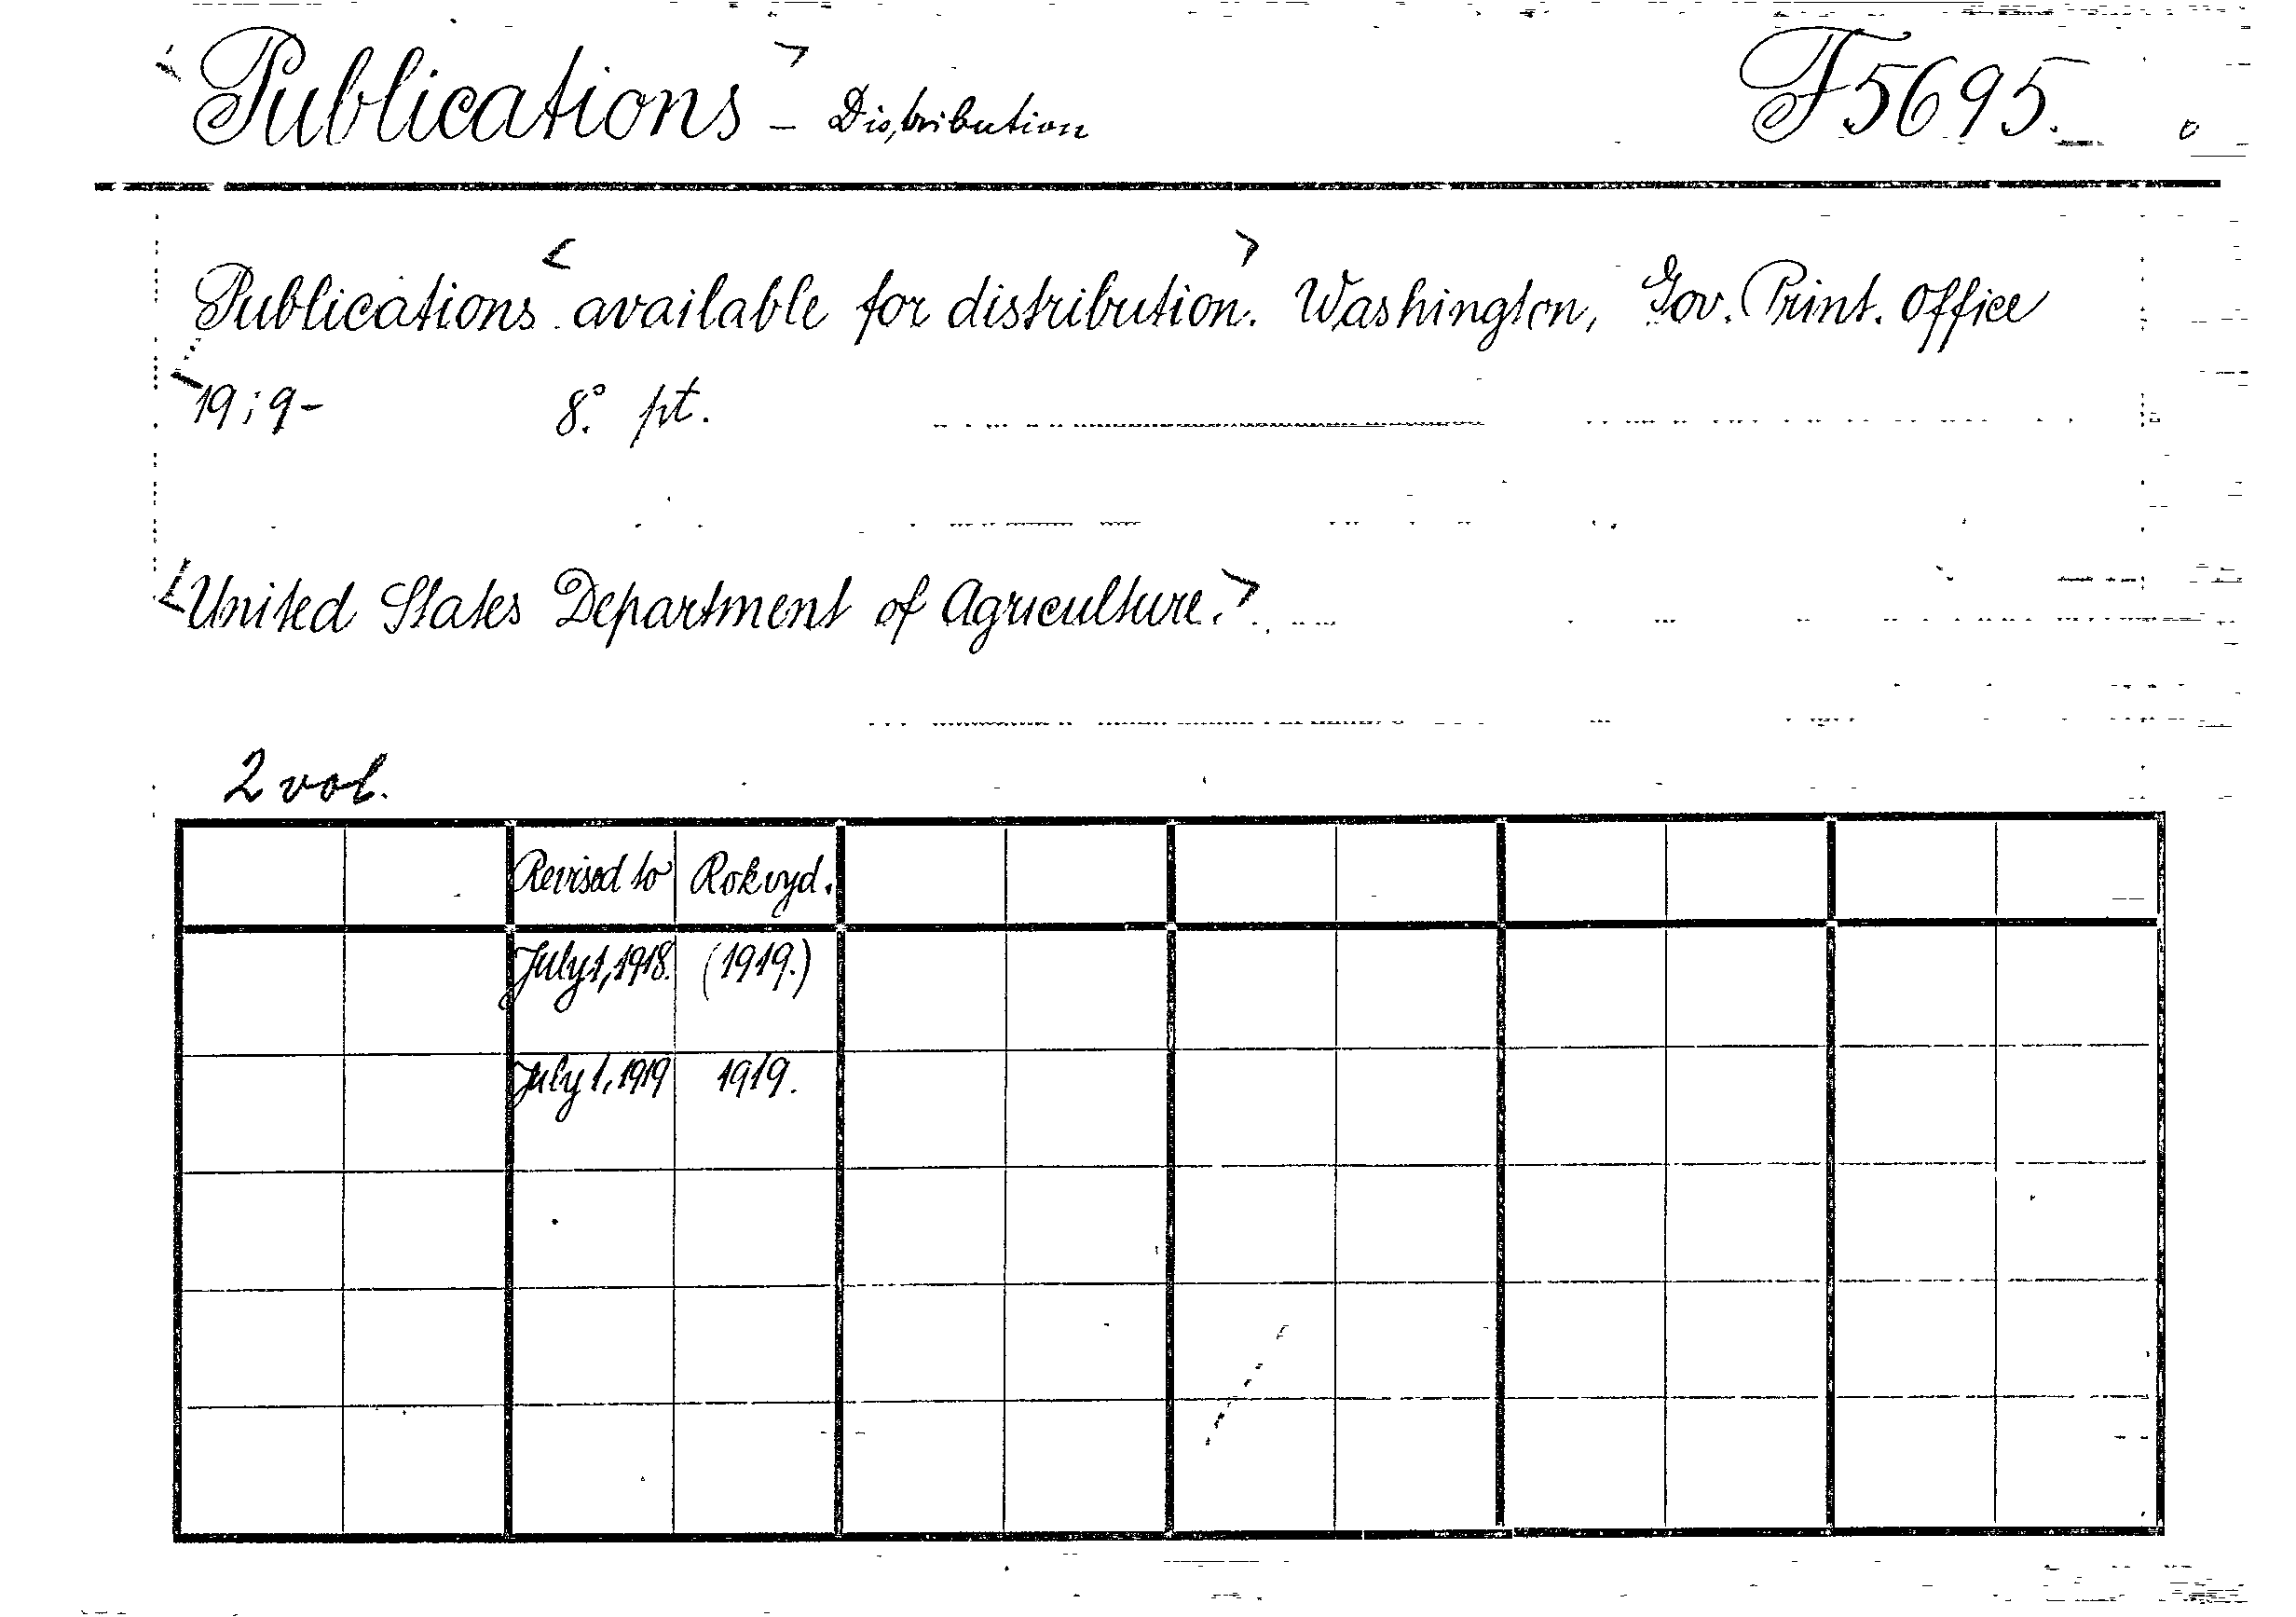 Publications - Distribution F5695.
Publications available for distribution. Washington, Gov. Print. Office
1919- 8° pt.
United States Department of Agriculture.
2 vol.
Revised to Rok vyd.
July 1, 1918. (1919.)
July 1, 1919 1919.